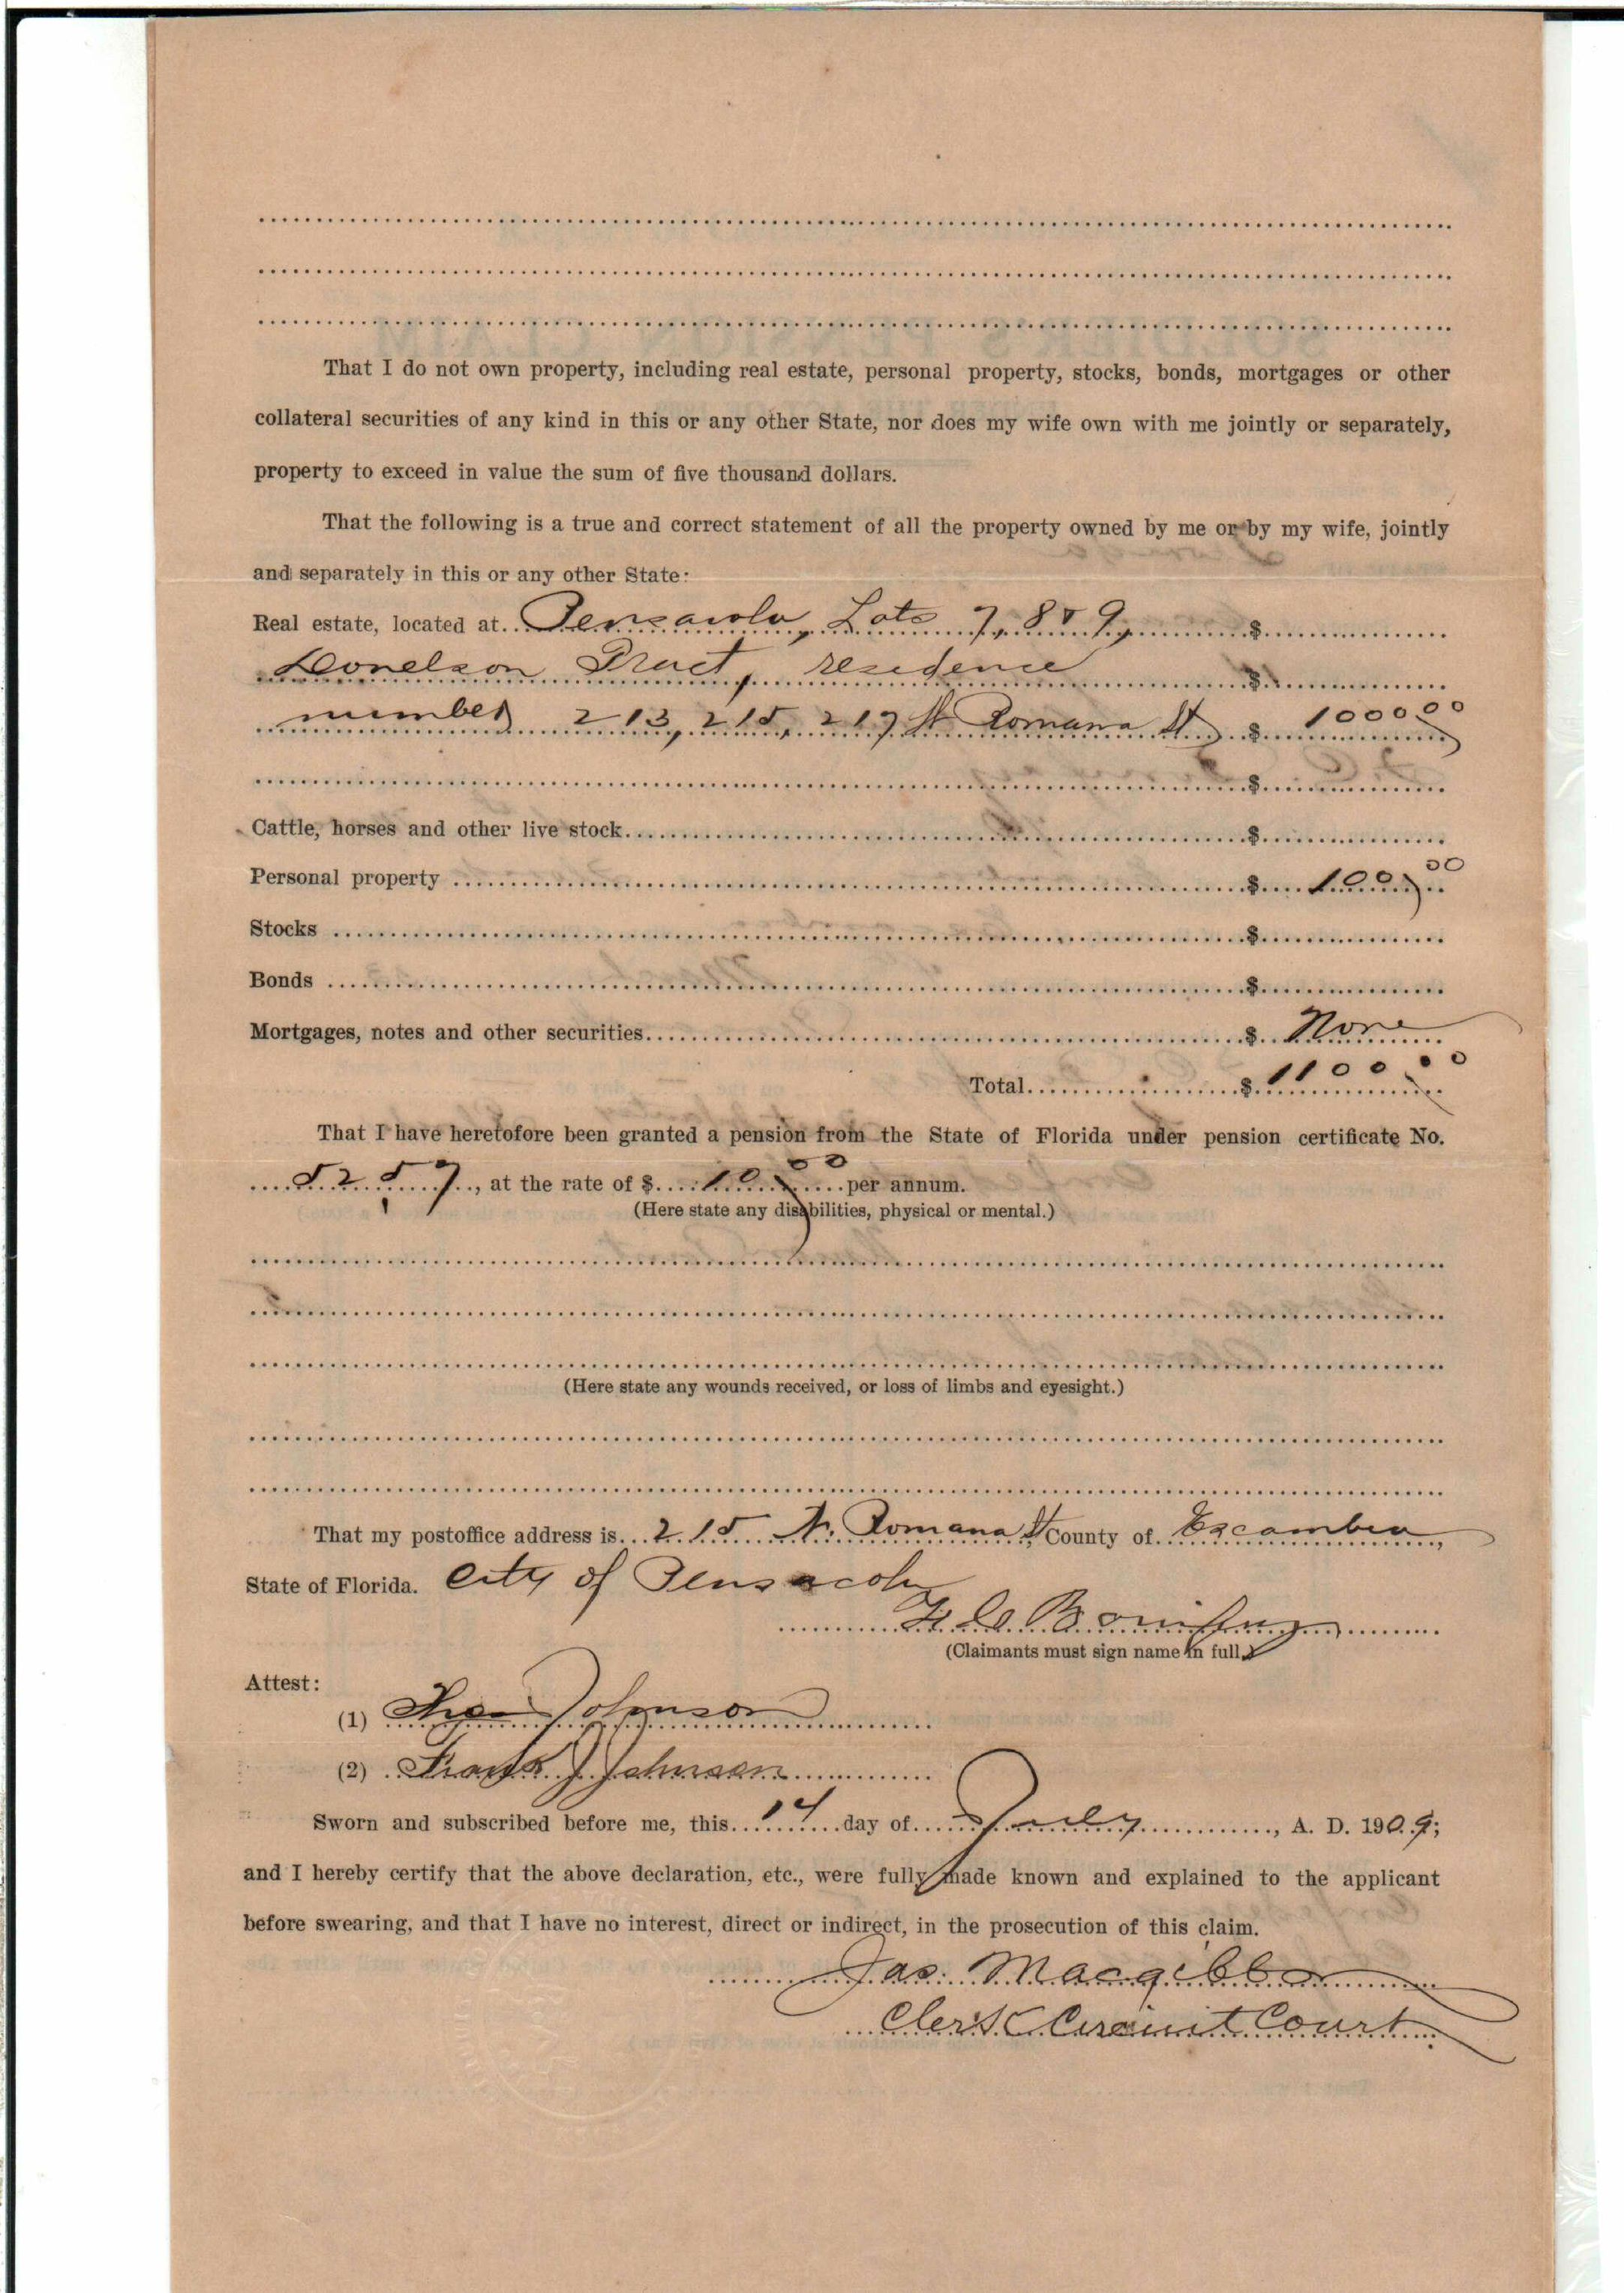 That I do not own property, including real estate, personal property, stocks, bonds, mortgages or other
collateral securities of any kind in this or any other State, nor does my wife own with me jointly or separately,
property to exceed in value the sum of five thousand dollars.
That the following is a true and correct statement of all the property owned by me or by my wife, jointly
and separately in this or any other State:
Real estate, located at Pensacola, Lots 7, 8 & 9, $
Donelson Tract, residence $
number 213, 215, 217 N Romana St $ 1000 00
$
Cattle, horses and other live stock $
Personal property $ 100 00
Stocks $
Bonds $
Mortgages, notes and other securities $ None
Total $ 1100 00
That I have heretofore been granted a pension from the State of Florida under pension certificate No.
5257, at the rate of $ 10 00 per annum.
(Here state any disabilities, physical or mental.)
(Here state any wounds received, or loss of limbs and eyesight.)
That my postoffice address is 215 N. Romana St County of Escambia,
State of Florida. City of Pensacola
F C Bonifay
(Claimants must sign name in full.)
Attest:
(1) Johnson
(2) Frank J Johnson
Sworn and subscribed before me, this 14 day of July, A. D. 1909;
and I hereby certify that the above declaration, etc., were fully made known and explained to the applicant
before swearing, and that I have no interest, direct or indirect, in the prosecution of this claim.
Jas. Macgibbon
Clerk Circuit Court